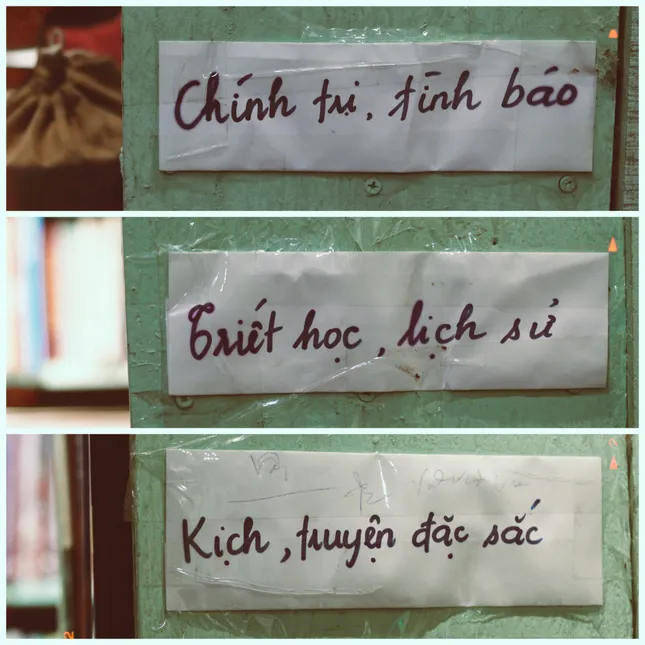 Chính trị, tình báo
Triết học, lịch sử
Kịch, truyện đặc sắc